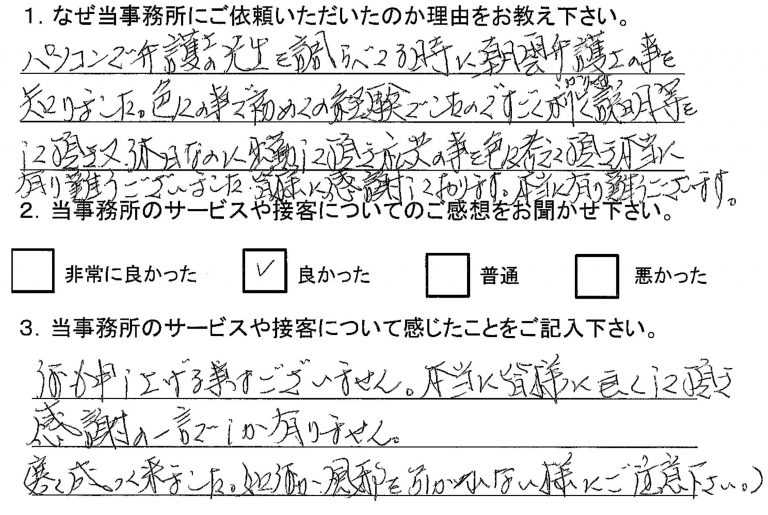 1. なぜ当事務所にご依頼いただいたのか理由をお教え下さい。
パソコンで弁護士の先生を調らべてる時に朝雲弁護士の事を
知りました。色々の事で初めての経験でしたのですごく 説明等を
して頂き又休日なのに出勤して頂き 事を色々 して頂き本当に
有り難うございました 皆様に感謝しております。本当に有り難うございます。
2. 当事務所のサービスや接客についてのご感想をお聞かせ下さい。
非常に良かった ✓ 良かった 普通 悪かった
3. 当事務所のサービスや接客について感じたことをご記入下さい。
何も申し上げる事はございません。本当に皆様に良くして頂き
感謝の一言でしか有りません。
(寒く成って来ました。 風邪を引かれない様にご注意下さい。)